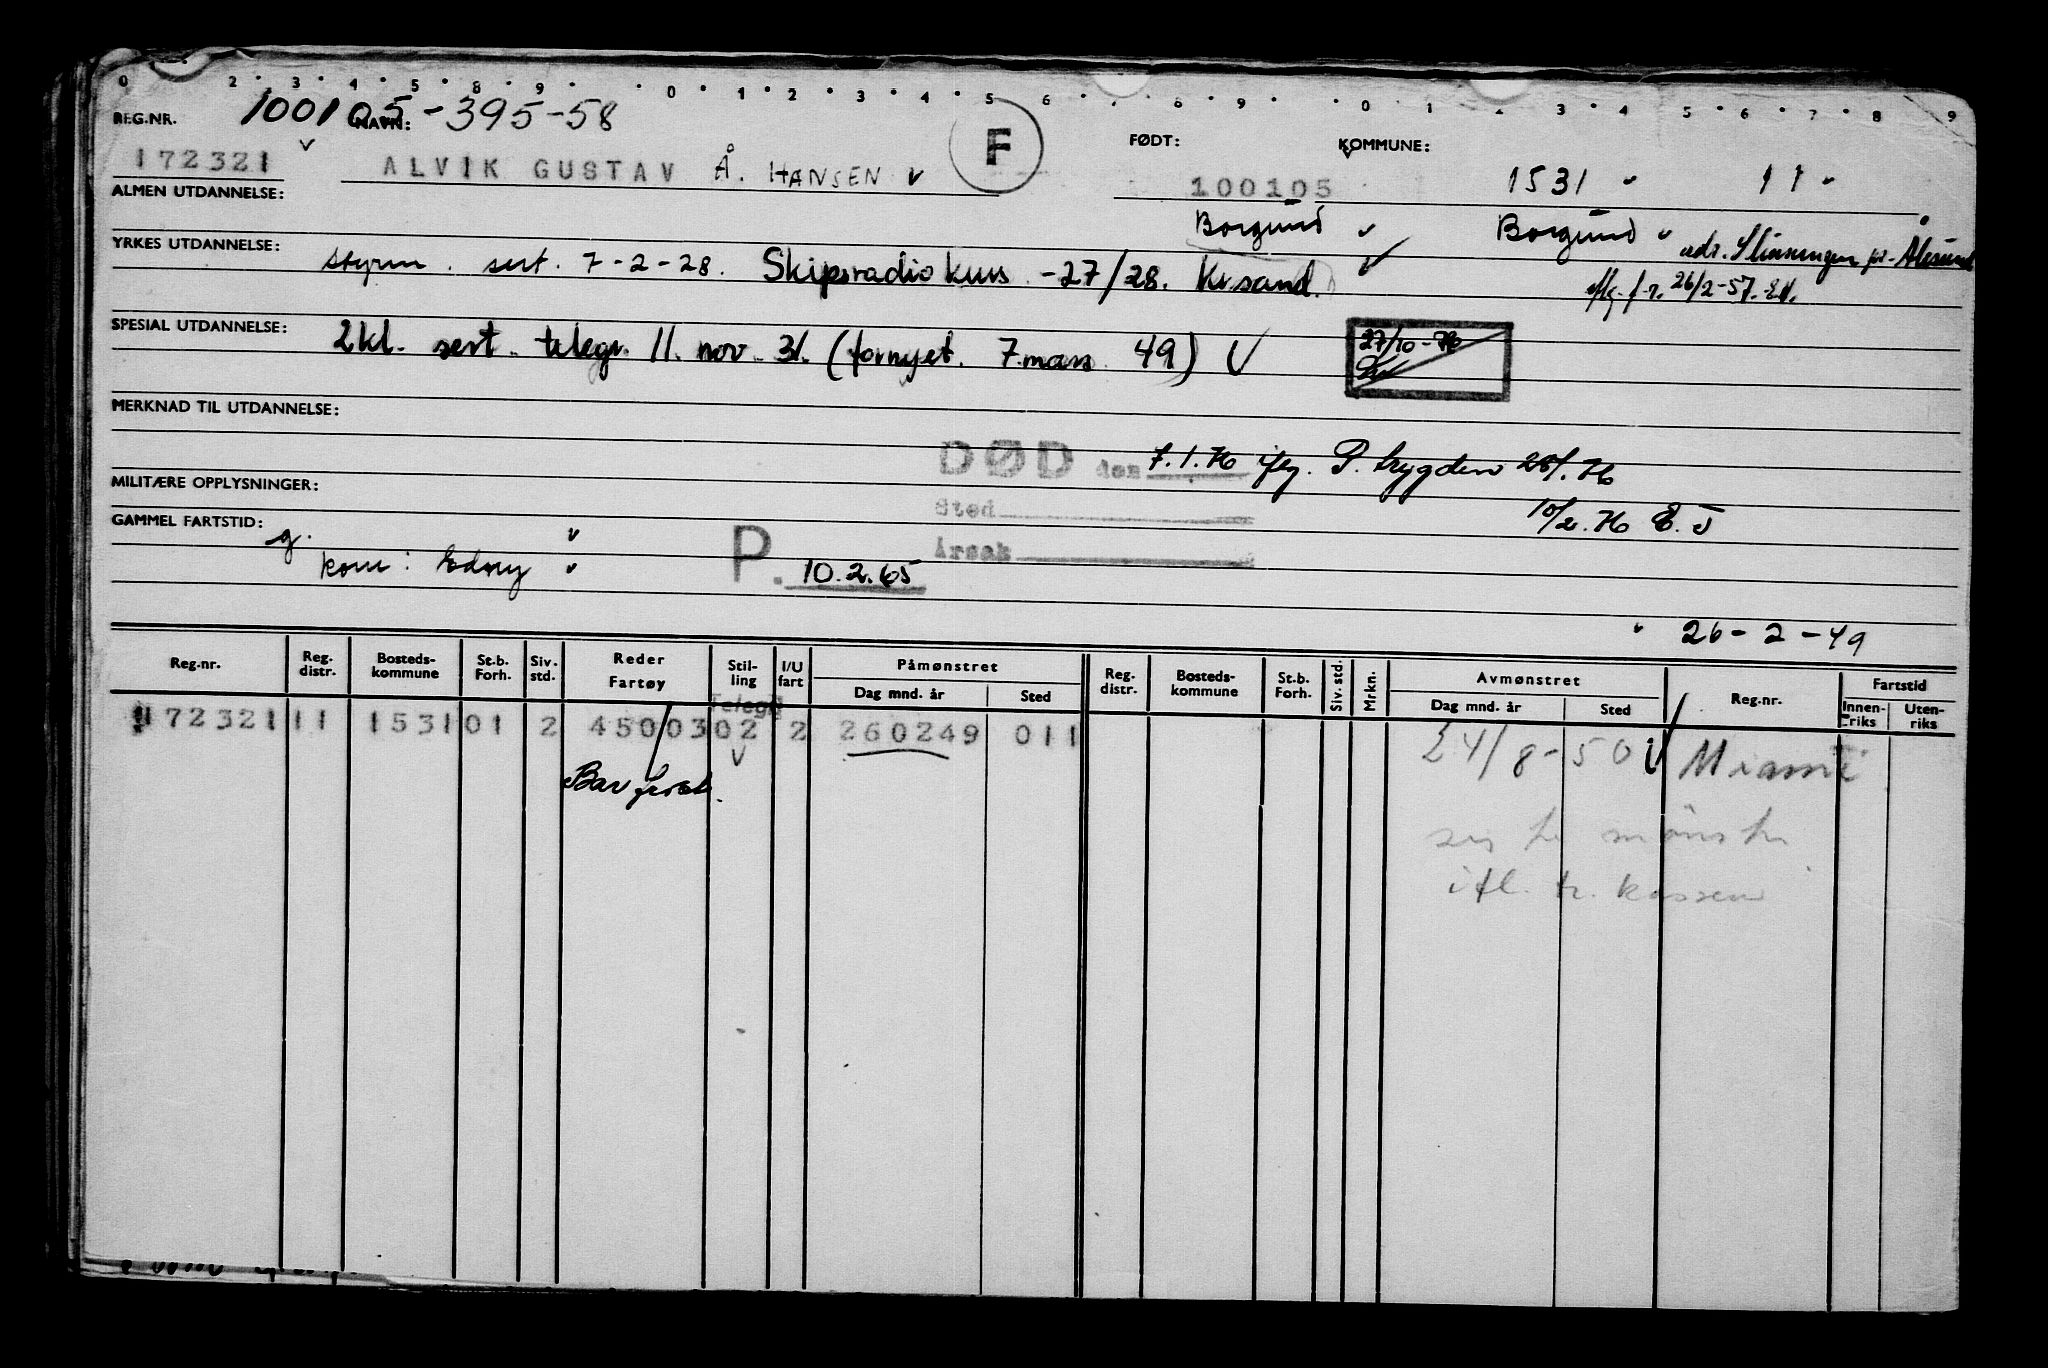 0 2 3 4 5 8 9 0 1 2 3 4 5 6 8 9 0 1 2 3 4 5 6 7 8 9
REG.NR. 100105-395-58 NAVN: F FØDT: KOMMUNE:
172321 ALVIK GUSTAV Å. HANSEN 100105 1531 11
ALMEN UTDANNELSE: Borgund Borgund adr. Slinningen pr. Ålesund
YRKES UTDANNELSE: styrm. sert. 7-2-28. Skipsradiokurs -27/28. Kr.sand.
26/2-57.
SPESIAL UTDANNELSE: 2kl. sert. telegr. 11. nov. 31. (fornyet. 7.mars 49) 27/10-76
MERKNAD TIL UTDANNELSE:
DØD den 7.1.76 P. trygden 28/1.76
MILITÆRE OPPLYSNINGER:
Sted 10/2.76 E.J
GAMMEL FARTSTID: g.
Årsak
kone: Edny P. 10.2.65
26-2-49
Reg.nr. Reg. distr. Bosteds-kommune St.b. Forh. Siv. std. Reder Fartøy Stil-ling I/U fart Påmønstret Dag mnd. år Sted Reg. distr. Bosteds-kommune St.b. Forh. Siv. std. Mrkn. Avmønstret Dag mnd. år Sted Reg.nr. Fartstid Innen-riks Uten-riks
Telegr
172321 11 1531 01 2 450/03 02 2 260249 011 24/8-50 Miami
Barfrost.
mønstr
ifl. tr. kassen